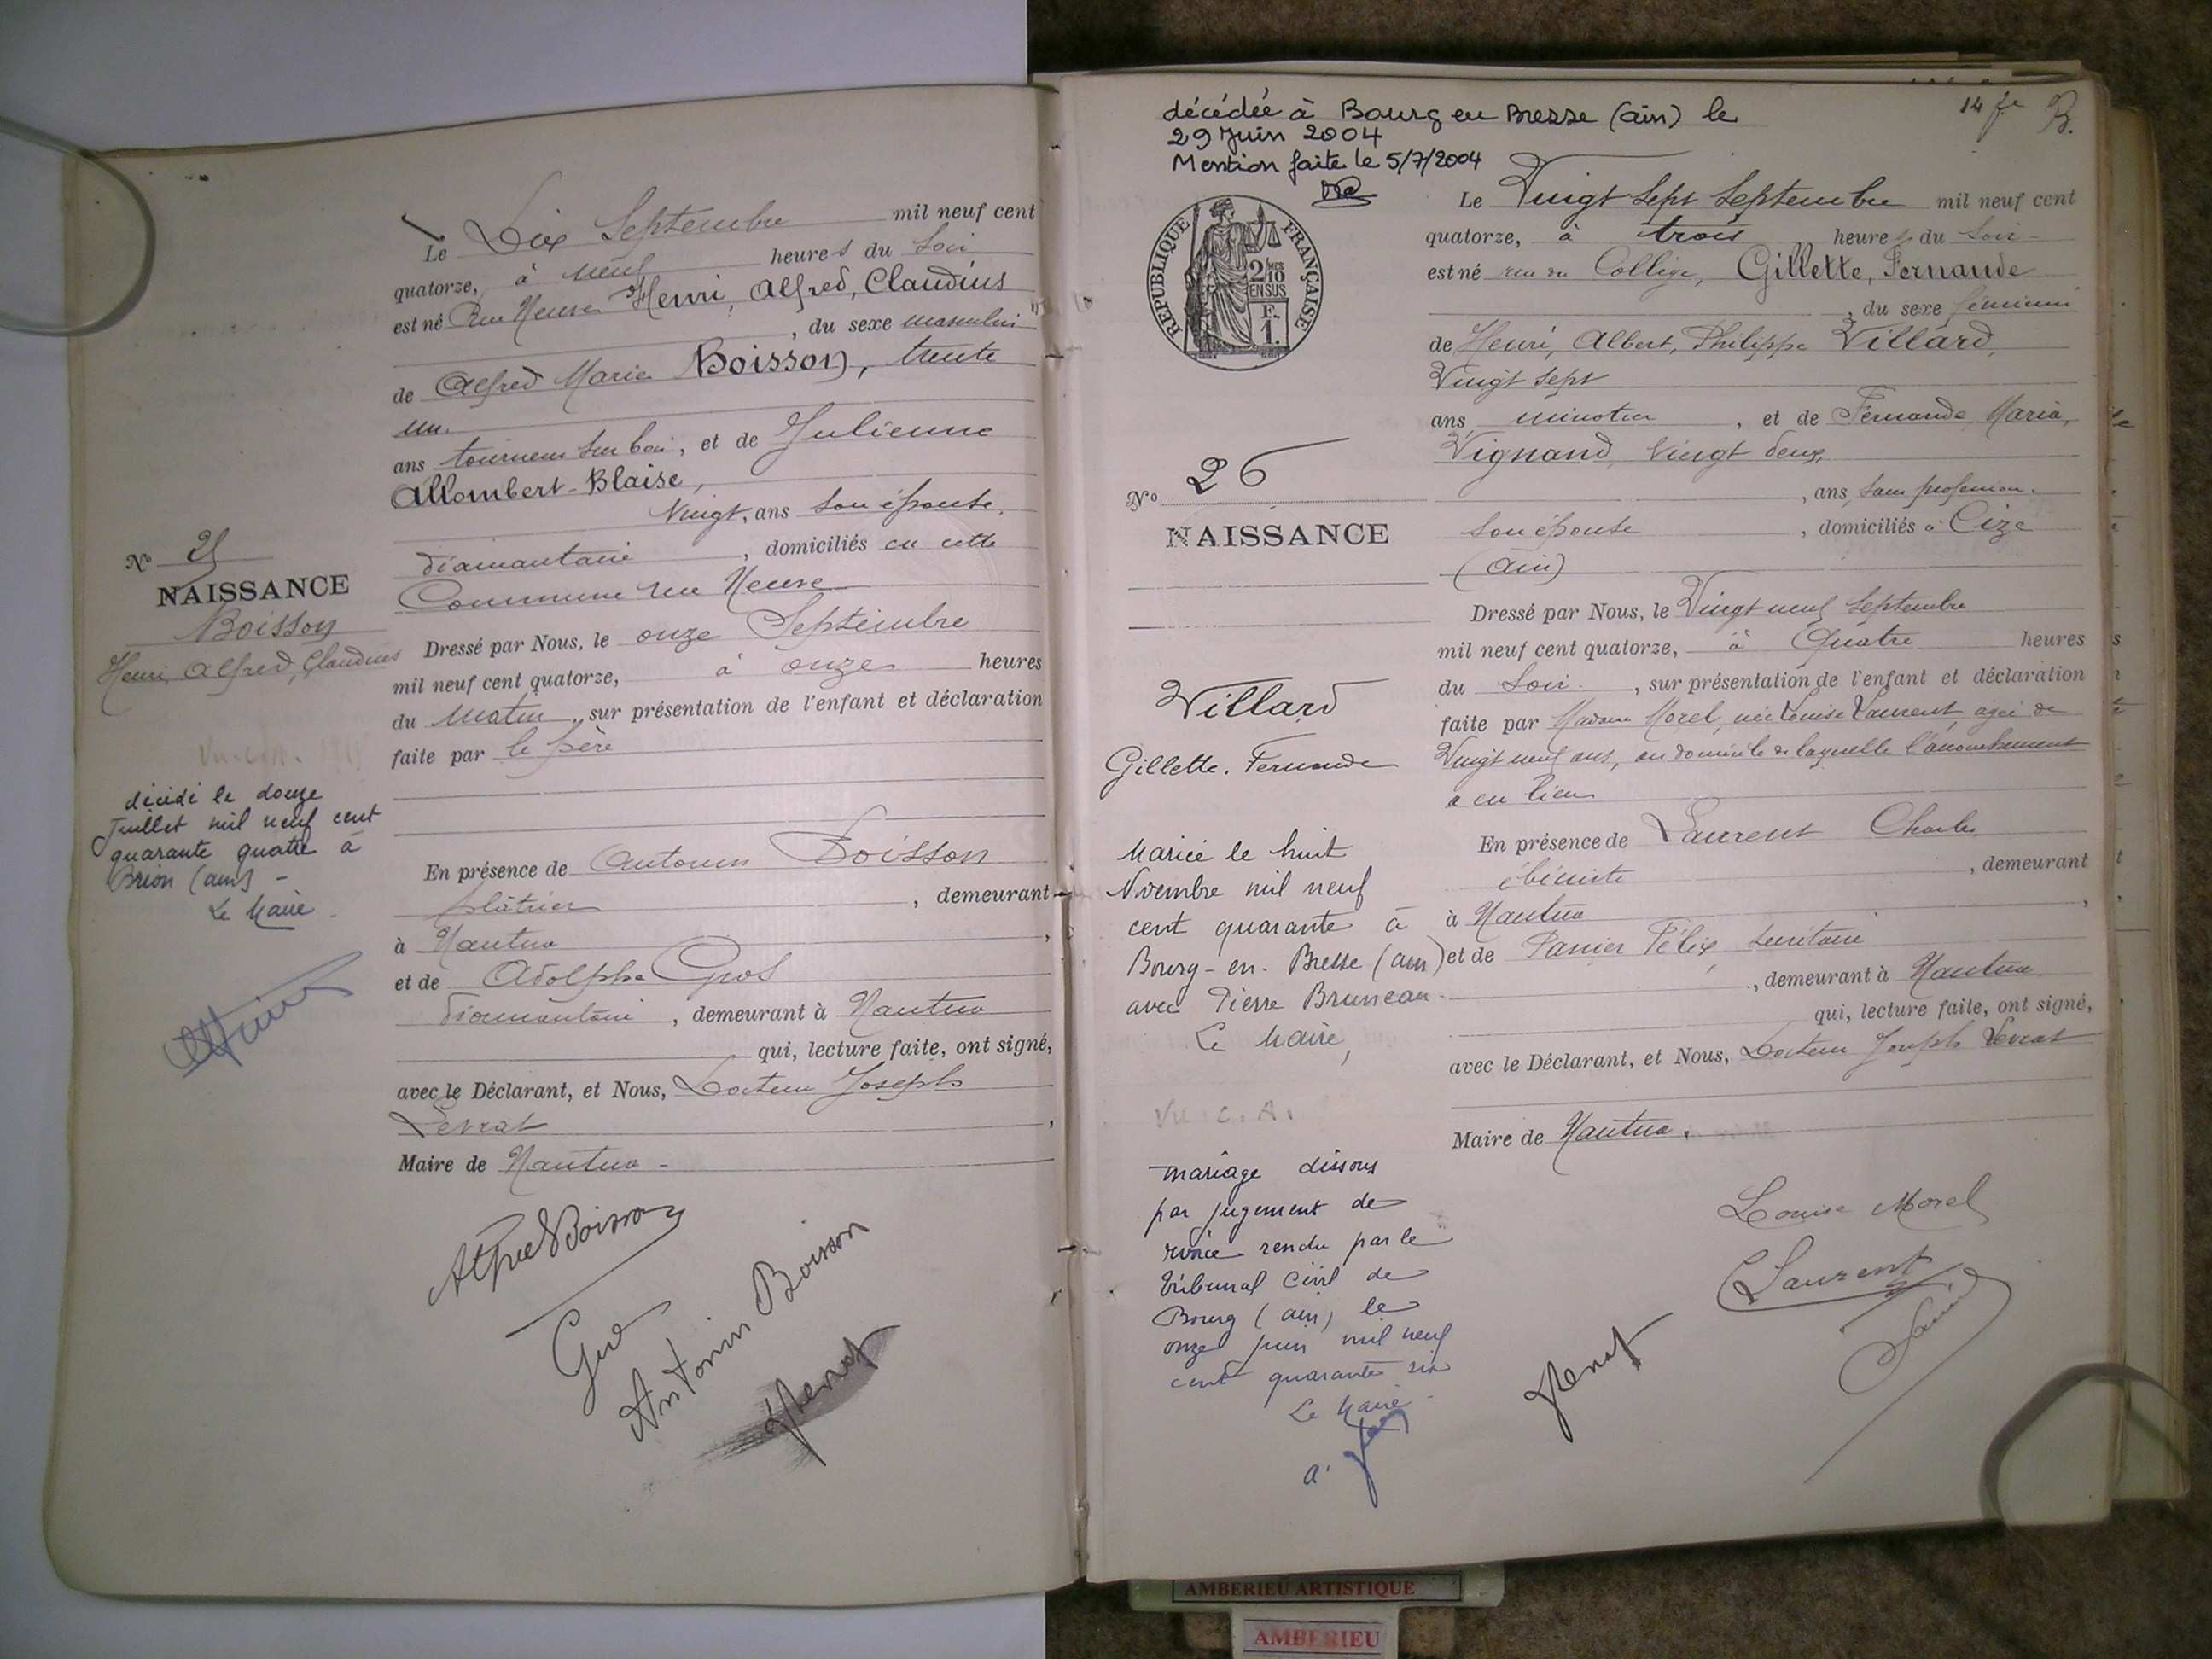 Le Dix Septembre mil neuf cent
quatorze, à neuf heures du soir
est né Rue Neuve Henri, Alfred, Claudius
, du sexe masculin
de Alfred Marie Boisson, trente
un
ans tourneur sur bois, et de Julienne
Allombert-Blaise,
Vingt, ans son épouse,
diamantaire, domiciliés en cette
Commune rue Neuve
Dressé par Nous, le onze Septembre
mil neuf cent quatorze, à onze heures
du matin, sur présentation de l'enfant et déclaration
faite par le père
En présence de Antonin Boisson
plâtrier, demeurant
à Nantua,
et de Adolphe Gros
diamantaire, demeurant à Nantua
qui, lecture faite, ont signé,
avec le Déclarant, et Nous, Docteur Joseph
Levrat,
Maire de Nantua -
Alfred Boisson
Gros
Antonin Boisson
JLevrat
No 25
NAISSANCE
Boisson
Henri, Alfred, Claudius
décédé le douze
Juillet mil neuf cent
quarante quatre à
Brion (ain) -
Le Maire
décédée à Bourg en Bresse (ain) le
29 Juin 2004
Mention faite le 5/7/2004
14 fe
REPUBLIQUE FRANÇAISE
2/10
EN SUS
F.
1.
Le Vingt sept Septembre mil neuf cent
quatorze, à trois heures du soir
est né rue du Collège, Gillette, Fernande
, du sexe féminin
de Henri, Albert, Philippe Villard,
Vingt sept
ans, minotier, et de Fernande, Maria,
Vignand, Vingt deux
, ans, sans profession.
son épouse, domiciliés à Cize
(ain)
Dressé par Nous, le Vingt neuf Septembre
mil neuf cent quatorze, à Quatre heures
du soir, sur présentation de l'enfant et déclaration
faite par Madame Morel, née Louise Laurent, agée de
Vingt neuf ans, au domicile de laquelle l'accouchement
a eu lieu
En présence de Laurent Charles
ébéniste, demeurant
à Nantua,
et de Panier Félix, secrétaire
, demeurant à Nantua
qui, lecture faite, ont signé,
avec le Déclarant, et Nous, Docteur Joseph Levrat
Maire de Nantua.
Louise Morel
CLaurent
JLevrat
No 26
NAISSANCE
Villard
Gillette. Fernande
Mariée le huit
Novembre mil neuf
cent quarante à
Bourg-en-Bresse (ain)
avec Pierre Bruneau.
Le Maire,
Vu C. A.
mariage dissous
par jugement de
rendu par le
Tribunal Civil de
Bourg (ain) le
onze juin mil neuf
cent quarante six
Le Maire
AMBERIEU ARTISTIQUE
AMBERIEU